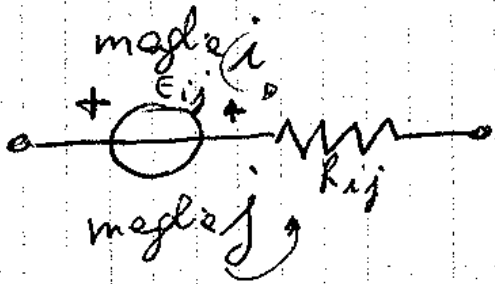 maglia i
+ Eij +
Rij
maglia j